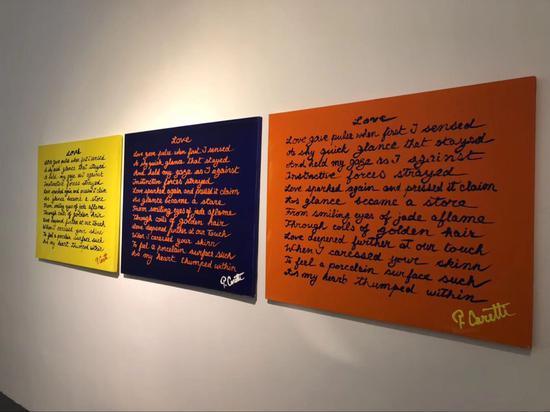 Love
Love gave pulse when first I sensed
A shy quick glance that stayed
And held my gaze as I against
Instinctive forces strayed
Love sparked again and pressed it claim
His glance became a stare
From smiling eyes of jade aflame
Through coils of golden hair
Love deepened further at our touch
When I caressed your skinn
To feel a porcelain surface such
As my heart thumped within
Love
Love gave pulse when first I sensed
A shy quick glance that stayed
And held my gaze as I against
Instinctive forces strayed
Love sparked again and pressed it claim
His glance became a stare
From smiling eyes of jade aflame
Through coils of golden hair
Love deepened further at our touch
When I caressed your skinn
To feel a porcelain surface such
As my heart thumped within
P. Caretti
Love
Love gave pulse when first I sensed
A shy quick glance that stayed
And held my gaze as I against
Instinctive forces strayed
Love sparked again and pressed it claim
His glance became a stare
From smiling eyes of jade aflame
Through coils of golden hair
Love deepened further at our touch
When I caressed your skinn
To feel a porcelain surface such
As my heart thumped within
P. Caretti